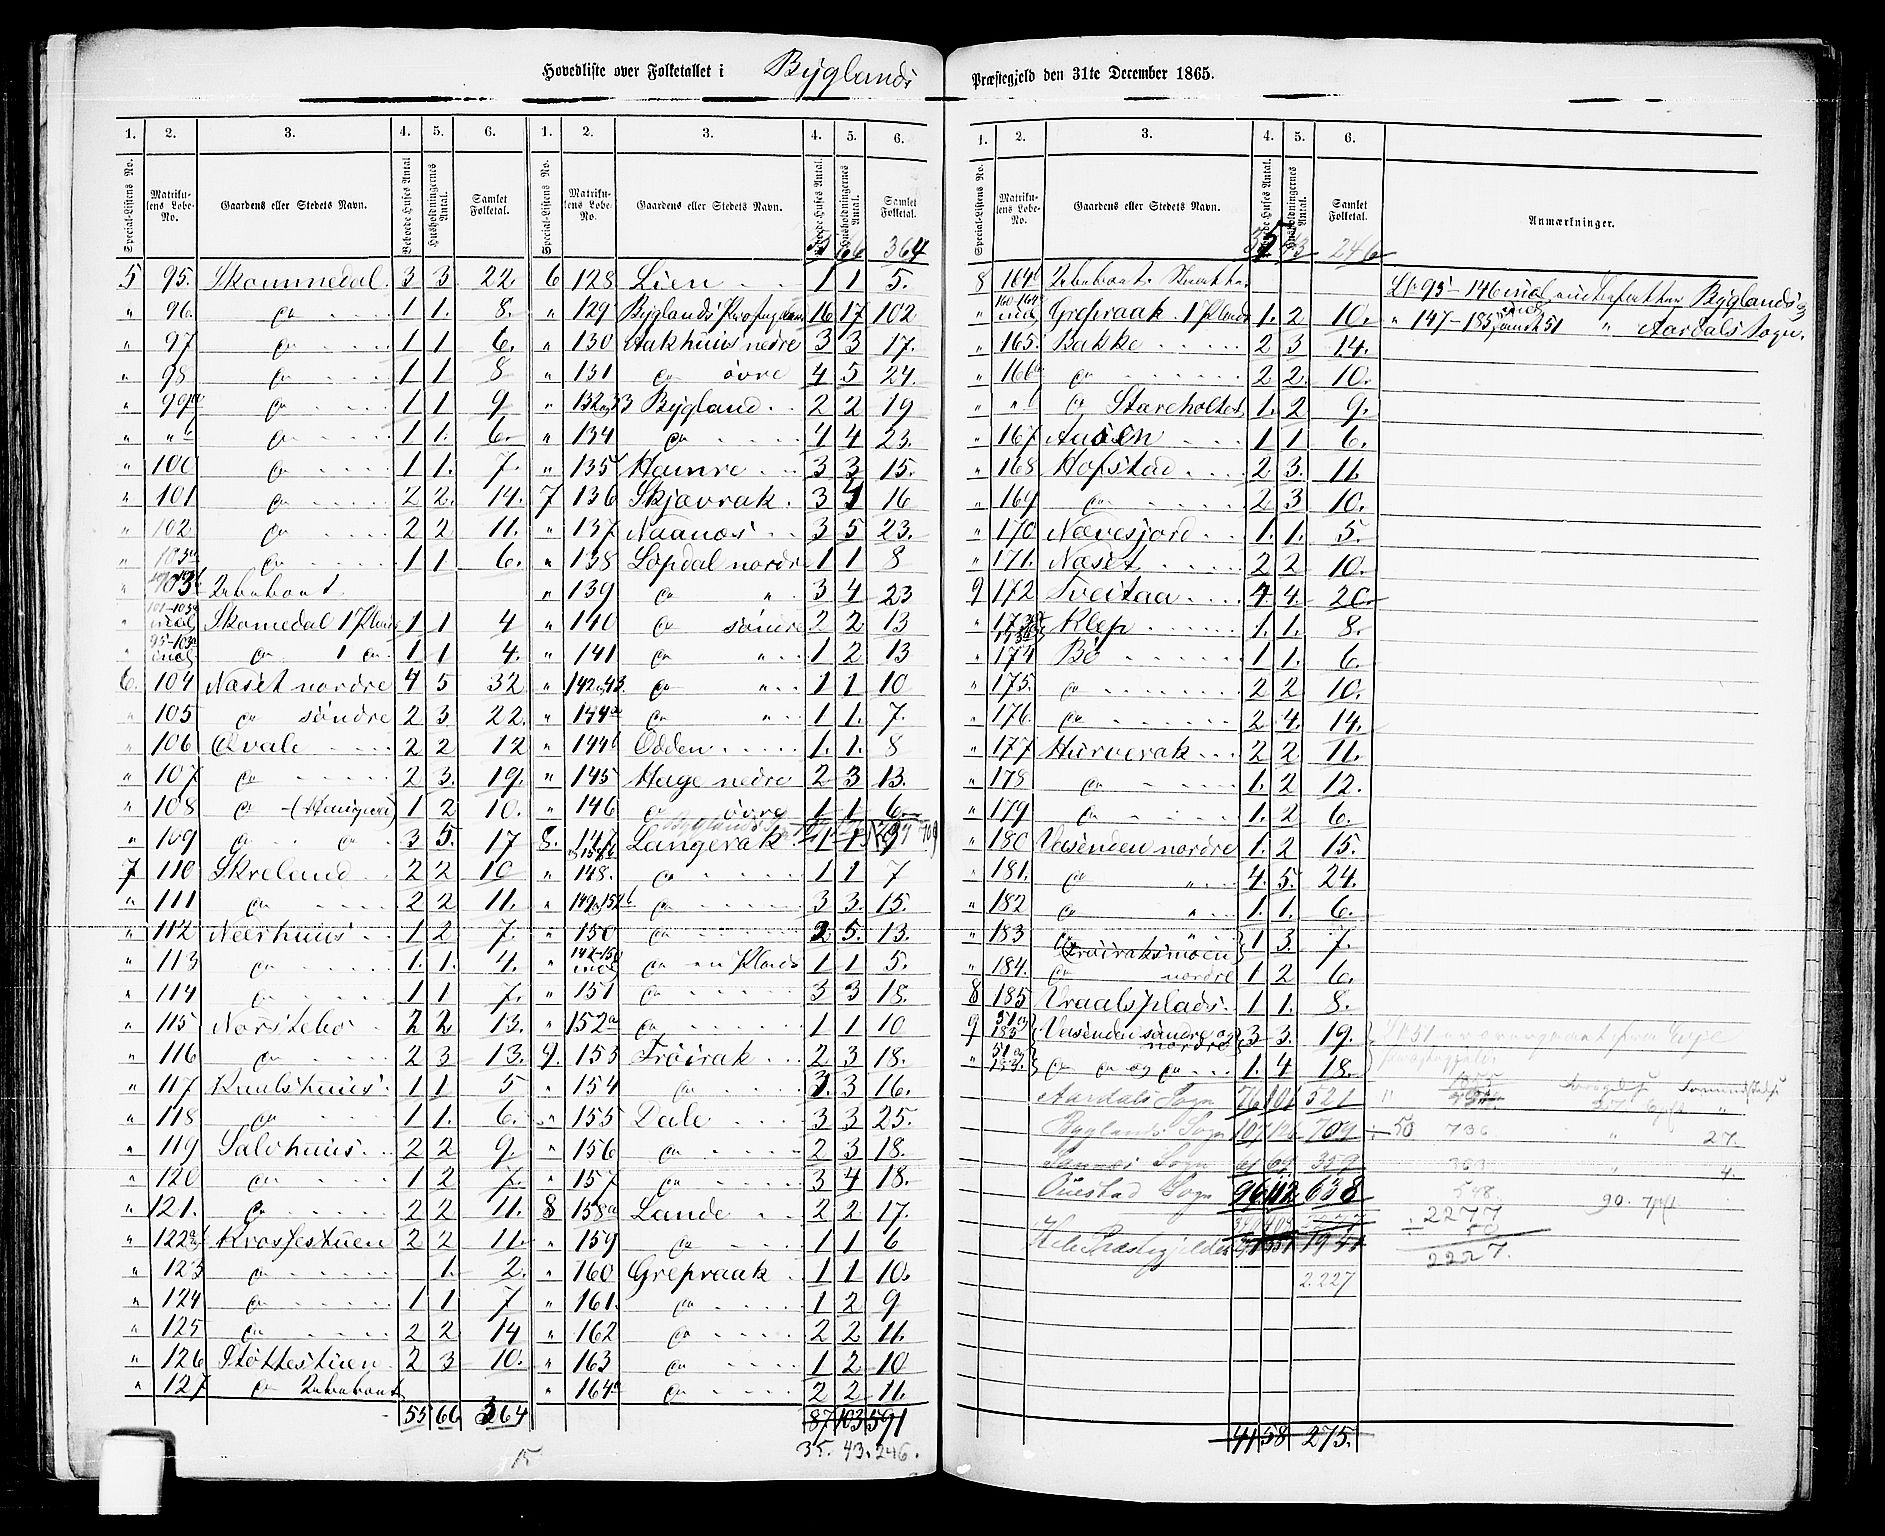 Hovedliste over Folketallet i Byglands Præstegjeld den 31te December 1865.
1. 2. 3. 4. 5. 6. 1. 2. 3. 4. 5. 6.
Special-Listens No. Matrikulens Løbe-No. Gaardens eller Stedets Navn. Beboede Huses Antal Husholdningernes Antal. Samlet Folketal. Special-Listens No. Matrikulens Løbe-No. Gaardens eller Stedets Navn. Beboede Huses Antal. Husholdningernes Antal. Samlet Folketal.
55 66 364
5 95. Skommedal 3 3 22.
" 96. do 1 1. 8.
" 97 do 1 1 6.
" 98 do 1 1 8
" 99a do 1 1 9
" "b do 1 1. 6.
" 100 do 1 1. 7.
" 101 do 2 2. 14.
" 102 do 2 2 11.
" 103a do 1 1 6.
" 103b Ubeboet
" 101-103a incl Skomedal 1 Plads 1 1 4
" 95-103a incl do 1 do 1 1 4.
6. 104 Næset nordre 4 5 32
" 105 do söndre 2 3 22.
" 106 Qvale 2 2 12
" 107 do 2 3. 19.
" 108 do 1 2 10.
" 109 do do 3 5. 17
7 110 Skreland 2 2 10
" 111 do 2 2 11.
" 112 Neerhuus 1 2 7.
" 113 do 1. 1. 4.
" 114 do 1 1 7.
" 115 Norstebo 2 2 13.
" 116 do 2 3 13.
" 117 Kuulshuus 1 1 5
" 118 do 1 1. 6.
" 119 Salvhuus 2 2 9.
" 120 do 1 2 7.
" 121. do 2 2 11.
" 122 Krossestuen 2 2 11.
" 123 do 1. 2.
" 124 do 1 1 7
" 125 do 2 2 14
" 126 Stöttestuen 2 3 10.
" 127 do Ubeboet
55 66 364
15
6 128 Lien 1 1 5.
" 129 Byglands Præstegaard 16 17 102
" 130 Aakhuus nedre 3 3 17.
" 131 do övre 4 5 24.
" 132 og 33 Bygland 2 2 19
" 134 do 4 4 23.
" 135 Hamre 3 3 15.
7 136 Skjævrak. 3 4 16
" 137 Naanes 3 5 23.
" 138 Lopdal nordre 1 1 8
" 139 do " 3 4 23
" 140 do söndre 2 2 13
" 141 do " 1 2 13
" 142 og 43. do " 1 1 10
" 144a do " 1 1. 7.
" 144b Odden 1. 1. 8
" 145 Hage nedre 2 3 13.
" 146 do övre 1 1 6
Byglands S. 709
8. 147 Langerak 1 1 9
" 148. do 1 1 7
" 149 og 152b do 3 3. 15.
" 150 do 2 5. 13.
" 142-150 incl do en Plads 1 1 5.
" 151 do 3 3 18.
" 152a do 1 1 10
9. 153 Fröirak 2 3 18.
" 154 do 3 3 16.
" 155 Dale 3 3 25.
" 156 do 2 3 18.
" 157 do 3 4 18.
8 158a Lande 2 2 17.
" 159 do 1 1 6
" 160 Grepraak 1 1 10.
" 161. do 1 2 9
" 162 do 2 2 11.
" 163 do 1 2 10
" 164a do 2 2 11.
87 103 591
35. 43. 246.
1. 2. 3. 4. 5. 6.
Special-Listens No. Matrikulens Løbe-No. Gaardens eller Stedets Navn. Beboede Huses Antal. Husholdningernes Antal. Samlet Folketal. Anmærkninger.
35 43 246
8 164b Ubeboet
" 160-164 incl Grepraak 1 Plads 1. 2 10.
" 165. Bakke 2 3 14.
" 166a do 2 2. 10.
" "b do Stareholtet 1. 2 9.
" 167 Aasen 1 1 6.
" 168 Hofstad 2 3. 11.
" 169 do 2 3 10.
" 170 Nævesjord 1. 1. 5.
" 171. Næset 2 2 10.
9 172 Tveitaa 4 4. 20.
" 173 Klep 1. 1. 8.
" 174 Bö 1 1. 6.
" 175. do 2 2 10.
" 176. do 2 4. 14.
" 177 Hurverak 2 2 11.
" 178 do 1. 2 12.
" 179 do 1 2 6.
" 180 Væsenden nordre 1. 2 15.
" 181. do " 4. 5. 24.
" 182 do " 1. 1. 6.
" 183 do " (Fröiraksmoen) 1 3. 7.
" 184. do nordre 1 2 6.
8 185 Vraalsplads. 1 1. 8.
9 51 og 183 Væsenden söndre og nordre 3 3. 19.
" 51 og do do og do 1. 4 18.
Aardals Sogn 76 101 521
Byglands Sogn 107 126 709 ÷ 50 736 " 27.
Sandnes Sogn 61 69 359 " 4.
Öuestad Sogn 96 112 638 548. 90. Tpft
Hele Præstegjeldet
2.227
41 58 275.
Lb 95-146 incl Byglands
" 147-185 incl samt 51 " Aardals Sogn.
1855
2277
50
2227.